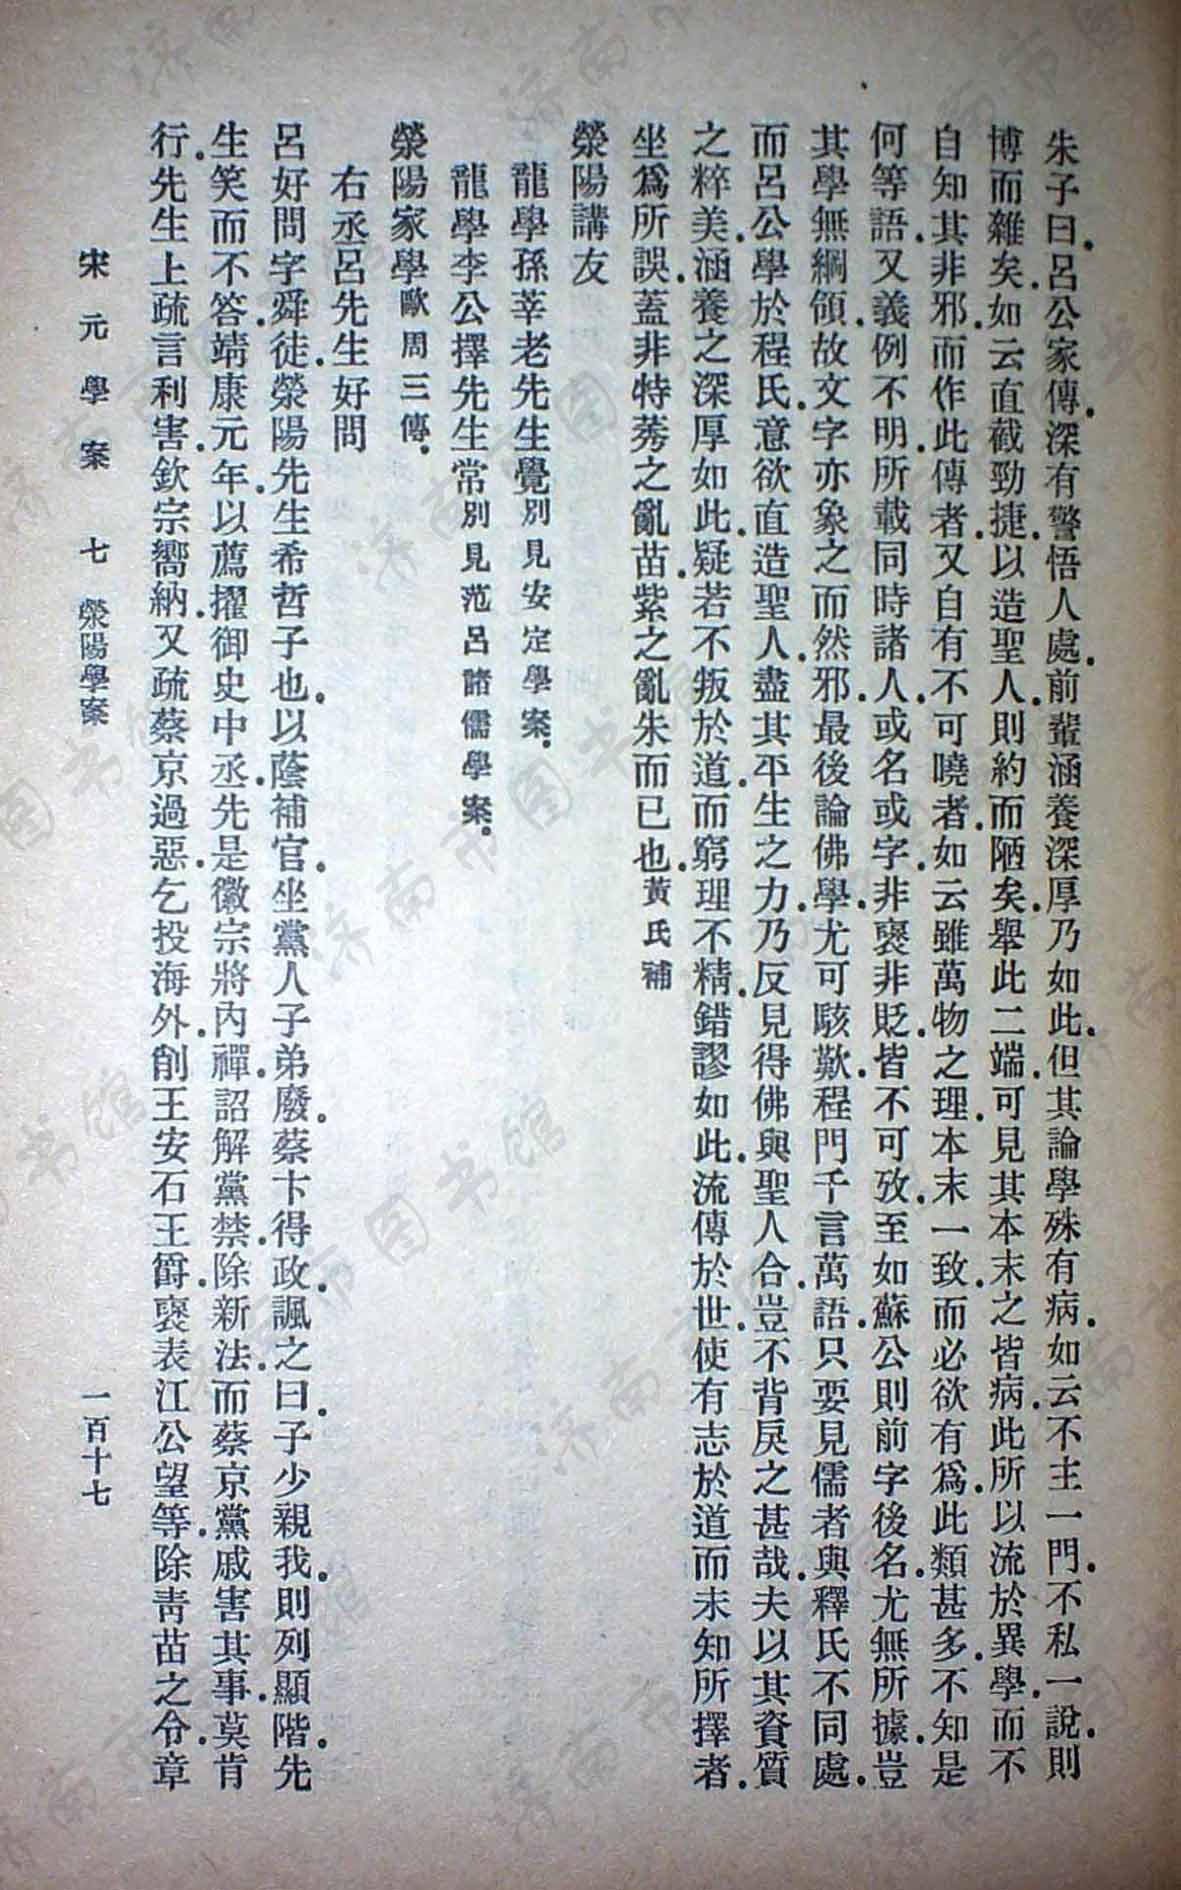 朱子曰.呂公家傳.深有警悟人處.前輩涵養深厚乃如此.但其論學殊有病.如云不主一門.不私一說.則
博而雜矣.如云直截勁捷.以造聖人.則約而陋矣.舉此二端.可見其本末之皆病.此所以流於異學.而不
自知其非邪.而作此傳者.又自有不可曉者.如云雖萬物之理.本末一致.而必欲有爲.此類甚多.不知是
何等語.又義例不明.所載同時諸人.或名或字.非褒非貶.皆不可攷.至如蘇公則前字後名.尤無所據.豈
其學無綱領.故文字亦象之而然邪.最後論佛學.尤可駭歎.程門千言萬語.只要見儒者與釋氏不同處.
而呂公學於程氏.意欲直造聖人.盡其平生之力.乃反見得佛與聖人合.豈不背戾之甚哉.夫以其資質
之粹美.涵養之深厚如此.疑若不叛於道.而窮理不精.錯謬如此.流傳於世.使有志於道而未知所擇者.
坐爲所誤.蓋非特莠之亂苗.紫之亂朱而已也.黃氏補
滎陽講友
龍學孫莘老先生覺別見安定學案.
龍學李公擇先生常別見范呂諸儒學案.
滎陽家學歐周三傳.
右丞呂先生好問
呂好問字舜徒.滎陽先生希哲子也.以蔭補官.坐黨人子弟廢.蔡卞得政.諷之曰.子少親我.則列顯階.先
生笑而不答.靖康元年.以薦擢御史中丞.先是徽宗將內禪.詔解黨禁.除新法.而蔡京黨戚害其事.莫肯
行.先生上疏言利害.欽宗嚮納.又疏蔡京過惡.乞投海外.削王安石王爵.褒表江公望等.除靑苗之令.章
宋元學案 七 滎陽學案 一百十七